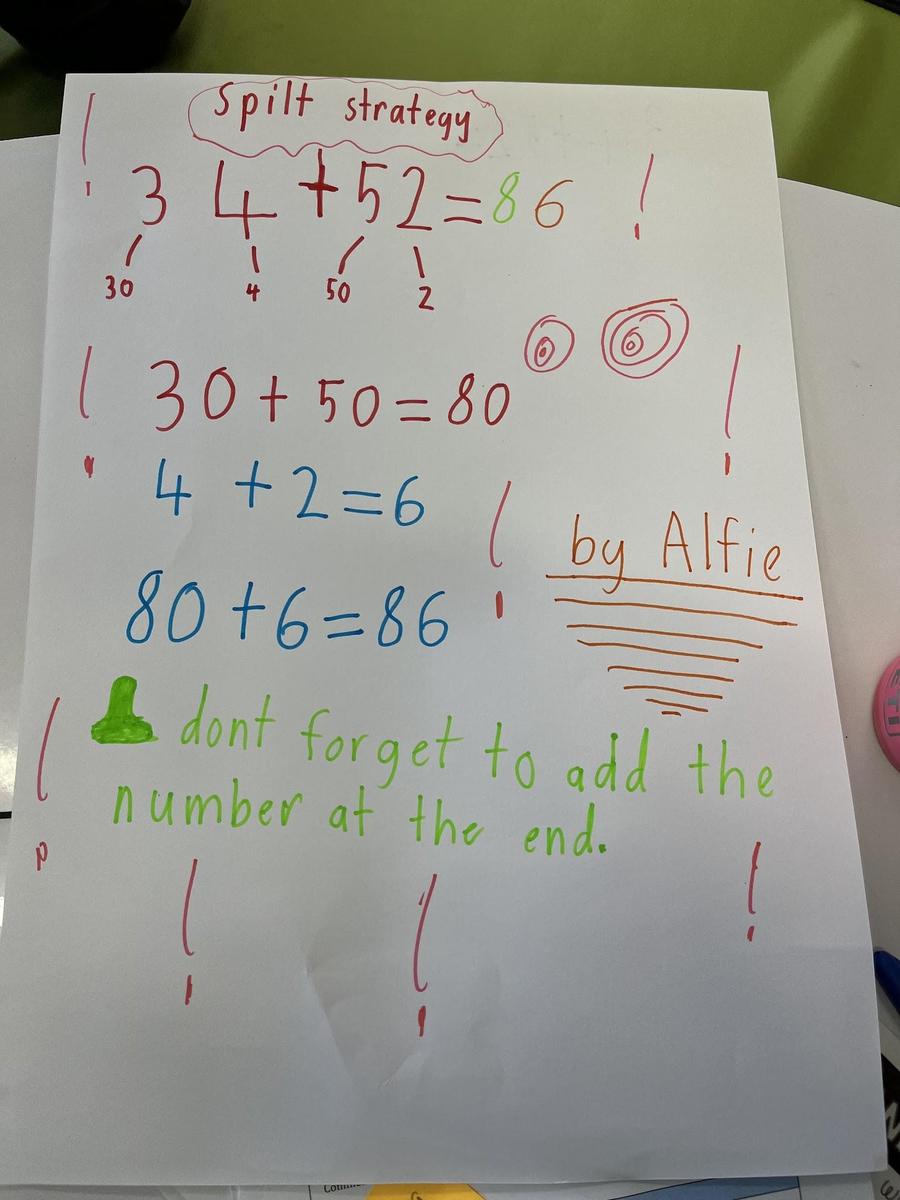 Spilt strategy
34+52=86
30 4 50 2
30+50=80
4+2=6
80+6=86
by Alfie
dont forget to add the
number at the end.